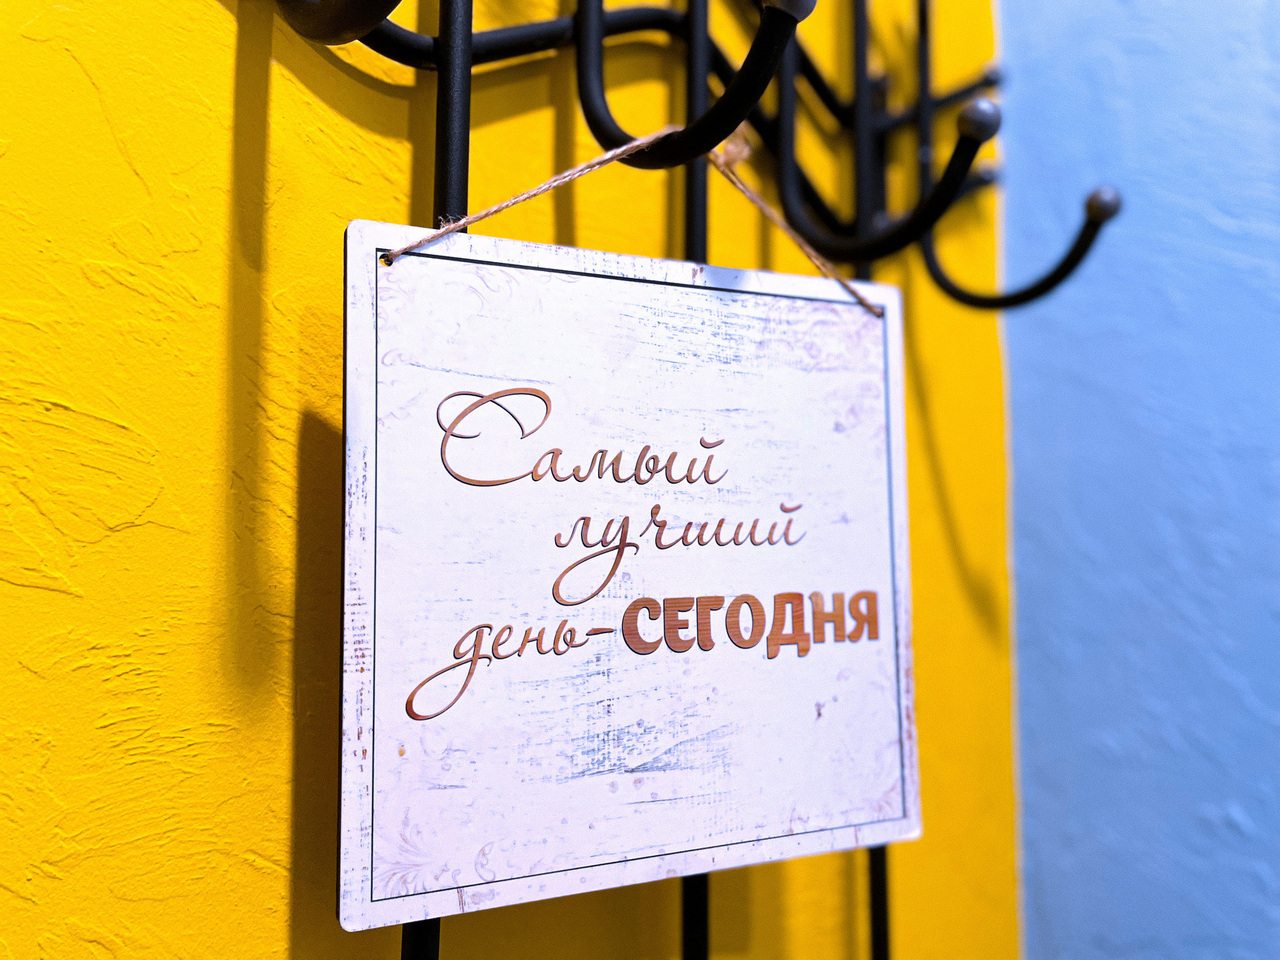 Самый
лучший
день-СЕГОДНЯ